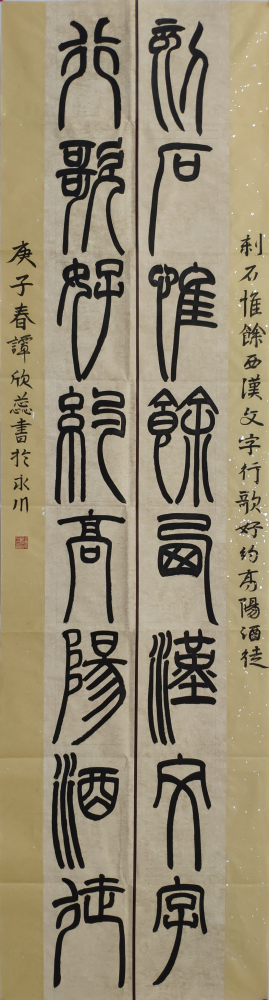 刻石惟餘西漢文字行歌好約高陽酒徒
刻石惟餘西漢文字
行歌好約高陽酒徒
庚子春譚欣蕊書於永川